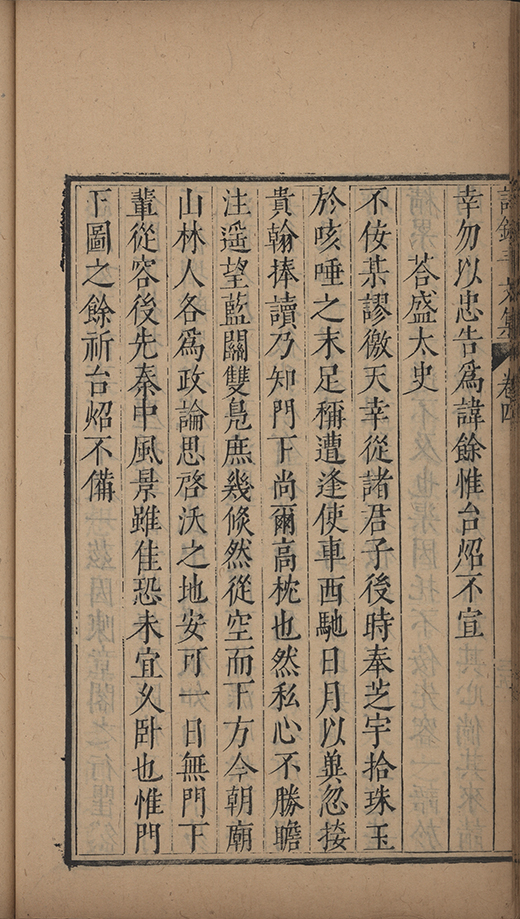 卷四
幸勿以忠告爲諱餘惟台炤不宣
荅盛太史
不佞某謬徼天幸從諸君子後時奉芝宇拾珠玉
於咳唾之末足稱遭逢使車西馳日月以兾忽接
貴翰捧讀乃知門下尚爾高枕也然私心不勝瞻
注遥望藍關雙鳧庶幾倐然從空而下方今朝廟
山林人各爲政論思啓沃之地安可一日無門下
輩從容後先秦中風景雖佳恐未宜久卧也惟門
下圖之餘祈台炤不備